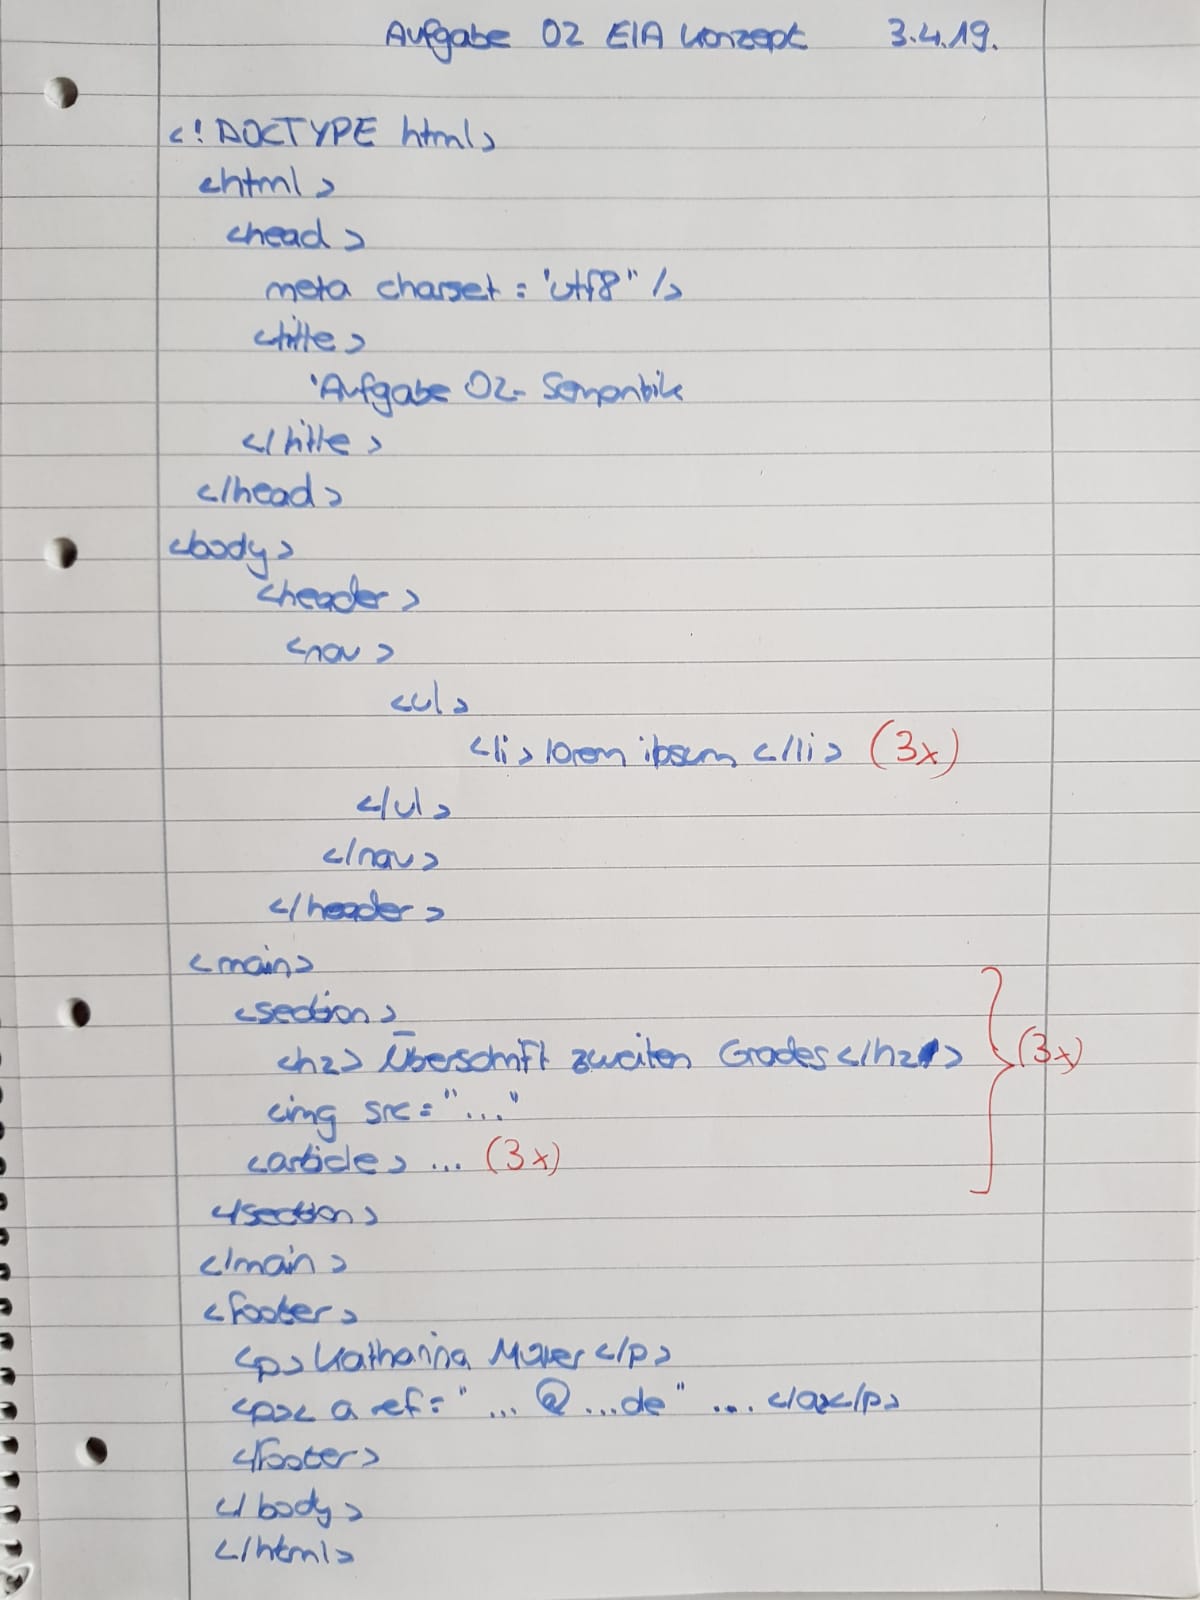 Aufgabe 02 EIA Konzept 3.4.19.
<!DOCTYPE html>
<html>
<head>
meta charset = "utf8" />
<title>
"Aufgabe 02- Semantik
</title>
</head>
<body>
<header>
<nav>
<ul>
<li> lorem ipsum </li> (3x)
</ul>
</nav>
</header>
<main>
<section>
<h2> Überschrift zweiten Grades </h2> (3x)
<img src="..."
<article> ... (3x)
</section>
</main>
<footer>
<p> Katharina </p>
<p>< a ref= "... @ ...de" ... </a></p>
</footer>
</body>
</html>